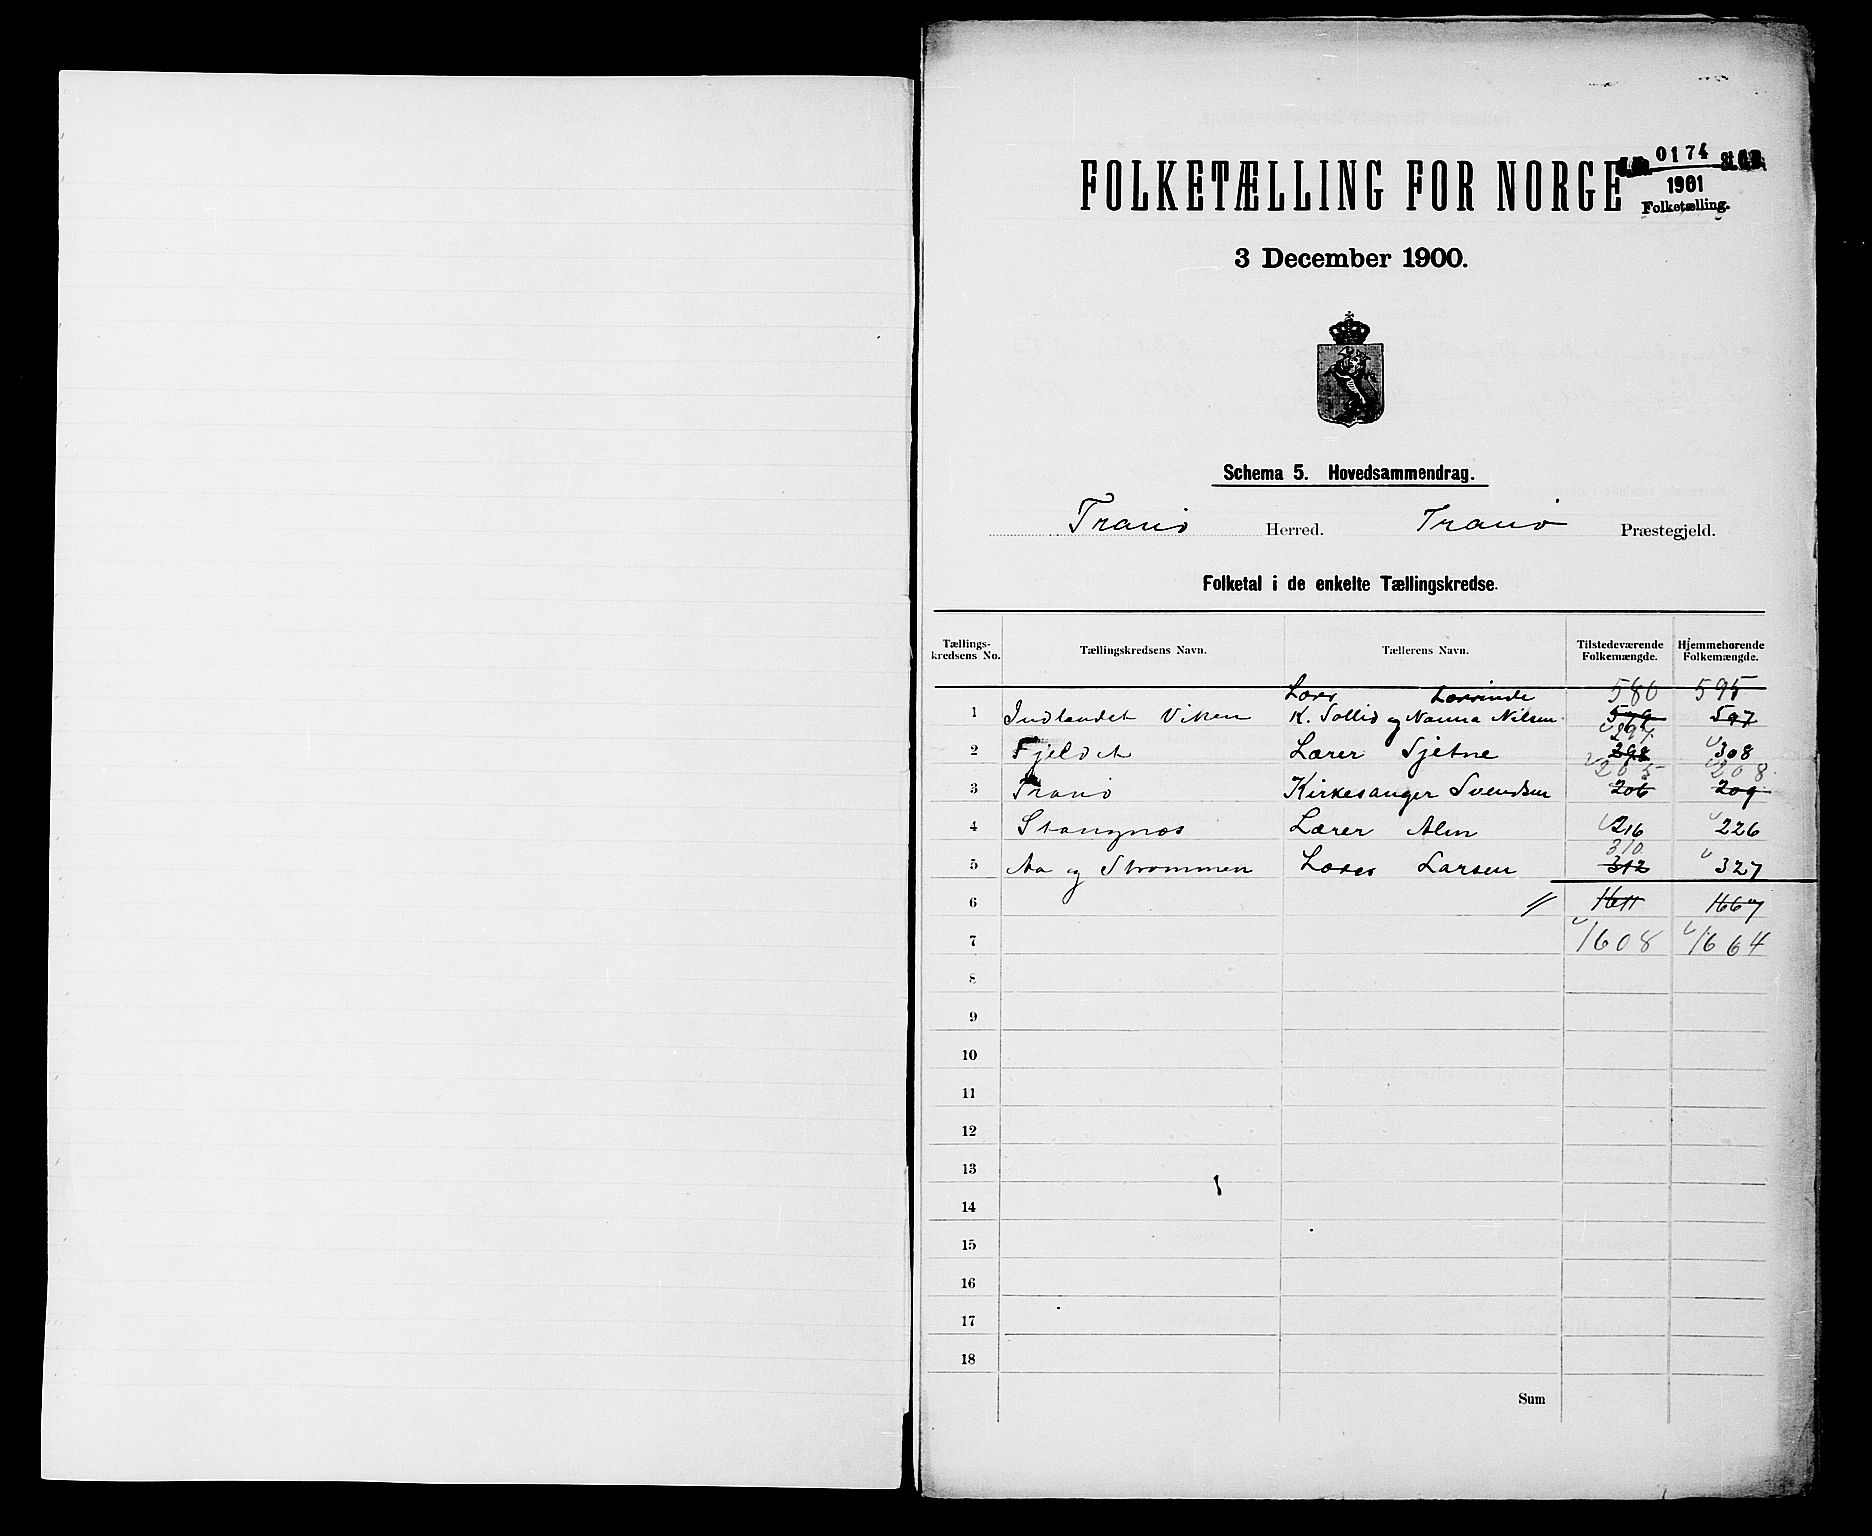 FOLKETÆLLING FOR NORGE
0174
1901
Folketælling.
3 December 1900.
Schema 5. Hovedsammendrag.
Tranö Herred. Tranö Præstegjeld.
Folketal i de enkelte Tællingskredse.
Tællings-kredsens No. Tællingskredsens Navn. Tællerens Navn. Tilstedeværende Folkemængde. Hjemmehørende Folkemængde.
580 595
1 Indlandet Viken K. Sollid og Nanna Nilsen 579 597
297
2 Fjeldet Lærer Sjetne 298 308
205 208
3 Tranö Kirkesanger Svendsen 206 209
4 Stangnæs Lærer Alm 216 226
310
5 Aa og Strømmen Lærer Larsen 312 327
6 1611 1667
7 1608 1664
8
9
10
11
12
13
14
15
16
17
18
Sum